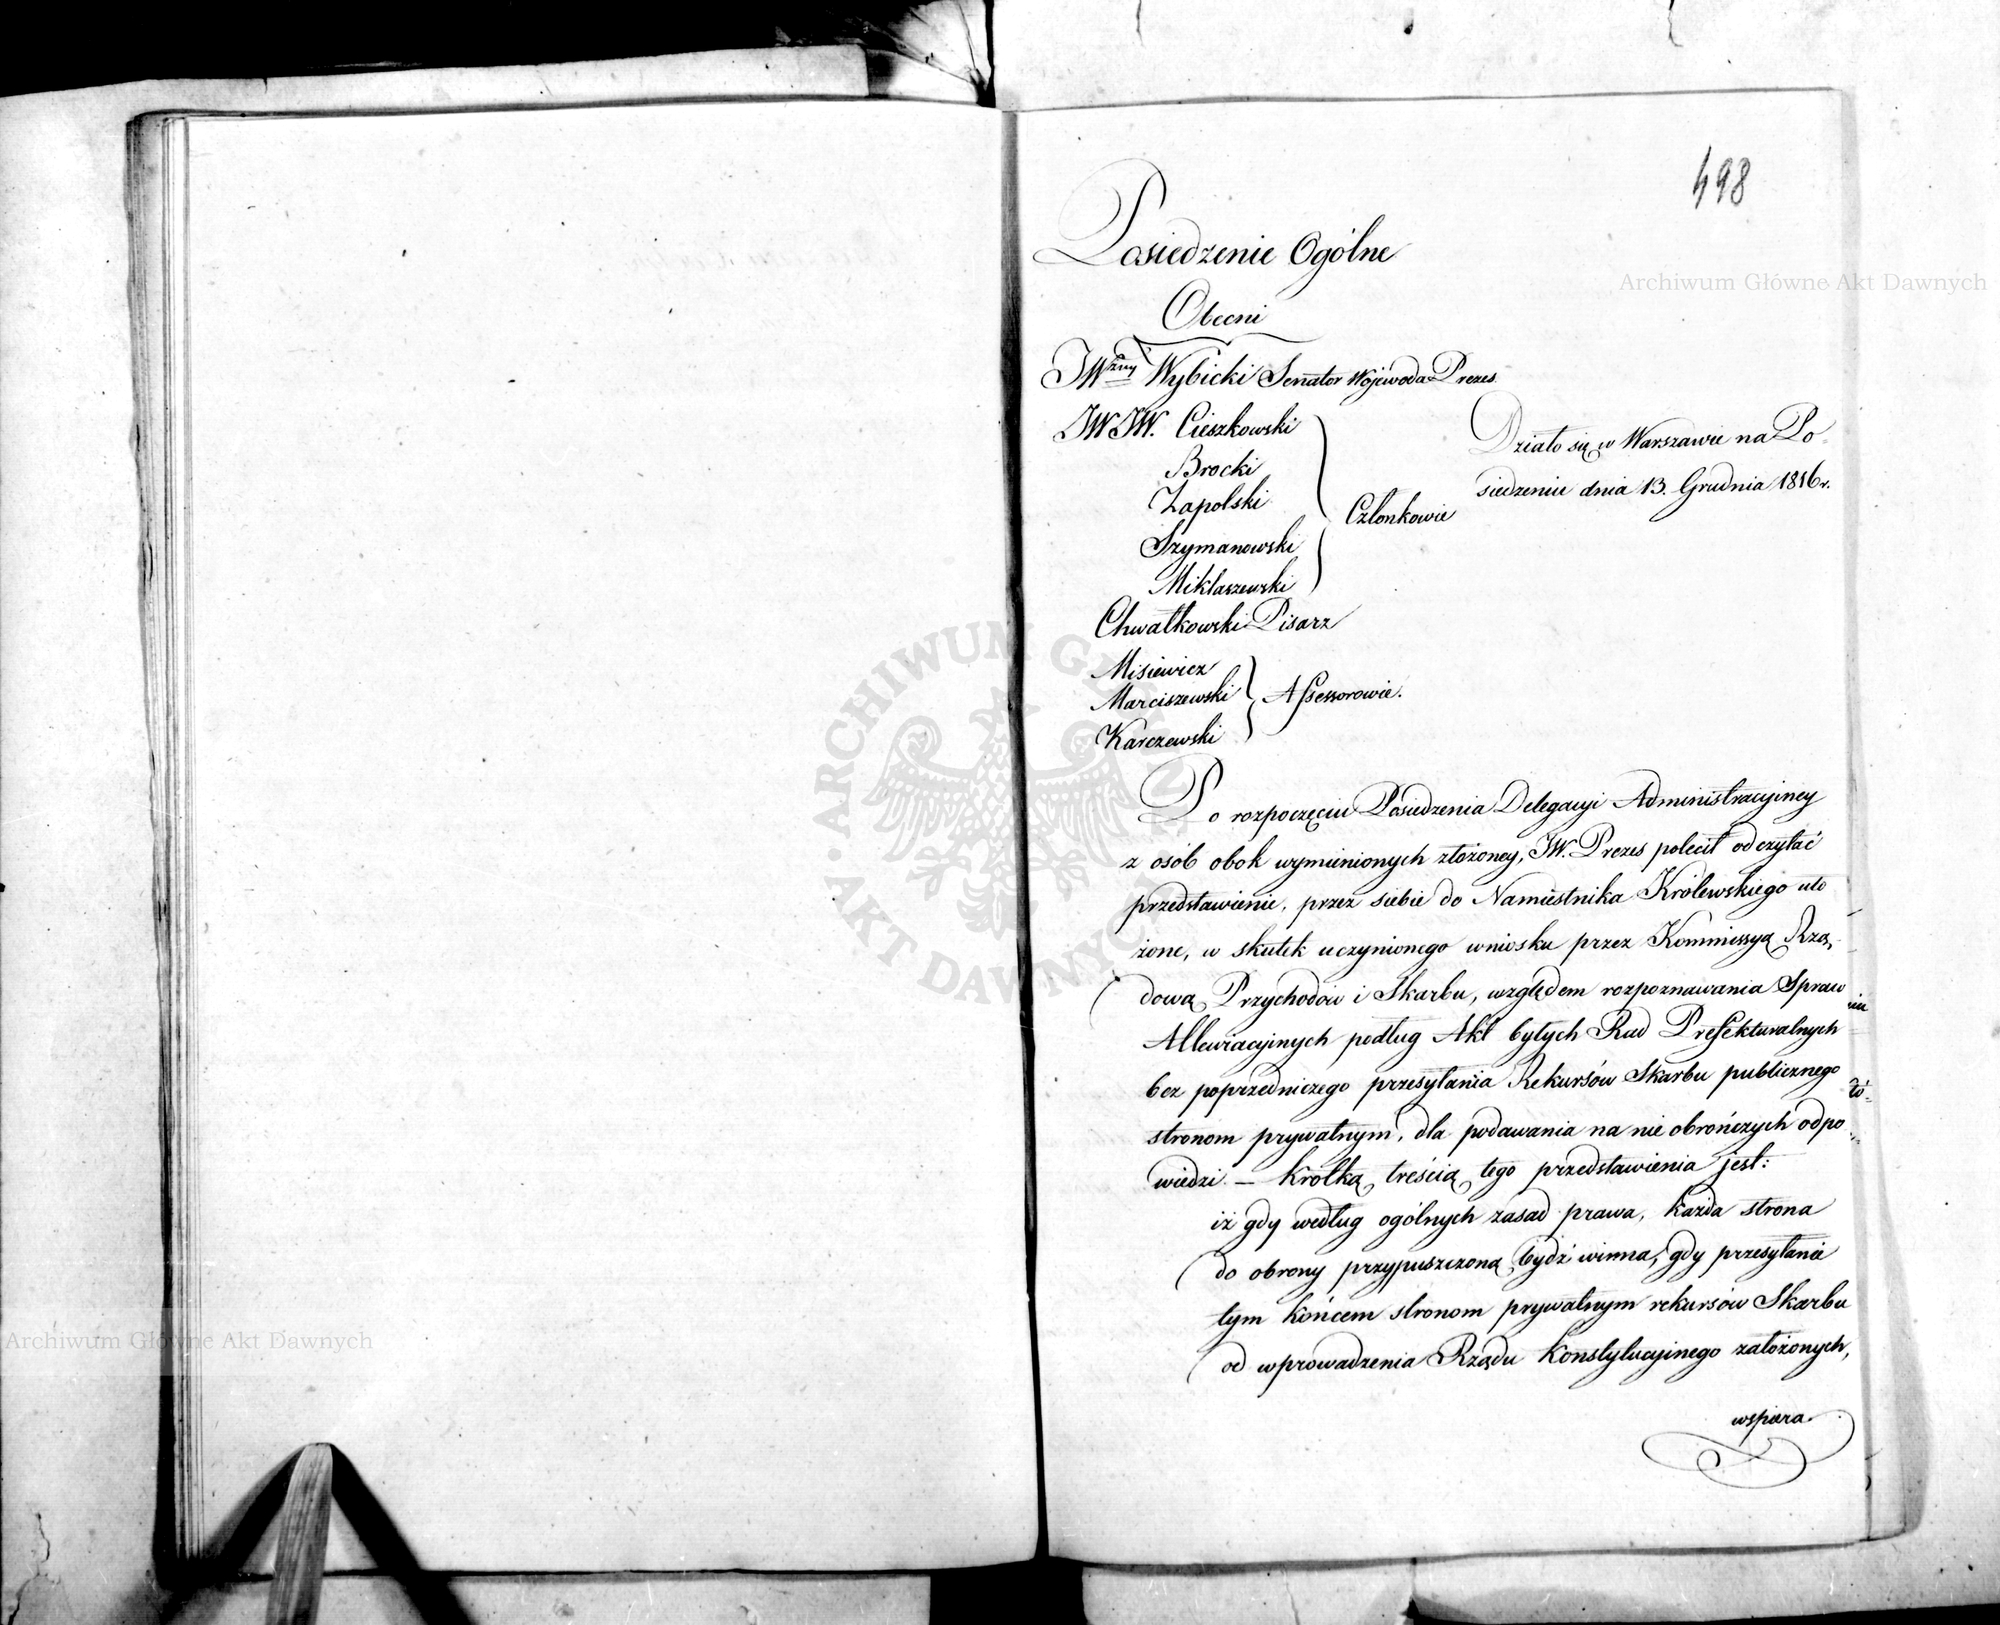 498
Posiedzenie Ogólne
Obecni
JWżny Wybicki Senator Wojewoda Prezes
JW JW. Cieszkowski
Brocki
Zapolski
Szymanowski
Miklaszewski
Członkowie
Działo się w Warszawie na Po-
siedzeniu dnia 13. Grudnia 1816 r.
Chwałkowski Pisarz
Misiewicz
Marciszewski
Karczewski
Assessorowie.
Po rozpoczęciu Posiedzenia Delegacyi Administracyiney
z osób obok wymienionych złożoney, JW. Prezes polecił odczytać
przedstawienie, przez siebie do Namiestnika Królewskiego uło
żone, w skutek uczynionego wniosku przez Kommissyą Rzą-
dową Przychodów i Skarbu, względem rozpoznawania Spraw
Allewiacyinych podług Akt byłych Rad Prefekturalnych
bez poprzedniczego przesyłania Rekursów Skarbu publicznego
stronom prywatnym, dla podawania na nie obrończych odpo
wiedzi. — Krótką treścią tego przedstawienia jest:
iż gdy według ogólnych zasad prawa, każda strona
do obrony przypuszczoną bydź winna, gdy przesyłanie
tym końcem stronom prywatnym rekursów Skarbu
od wprowadzenia Rządu Konstytucyinego założonych,
wspiera
Archiwum Główne Akt Dawnych
Archiwum Główne Akt Dawnych